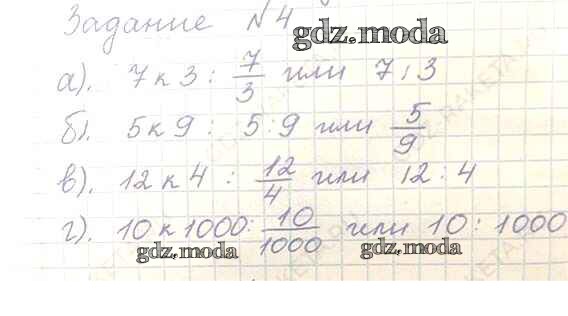 Задание №4
gdz.moda
а). 7 к 3 : 7/3 или 7 : 3
б). 5 к 9 : 5 : 9 или 5/9
в). 12 к 4 : 12/4 или 12 : 4
г). 10 к 1000 : 10/1000 или 10 : 1000
gdz.moda gdz.moda